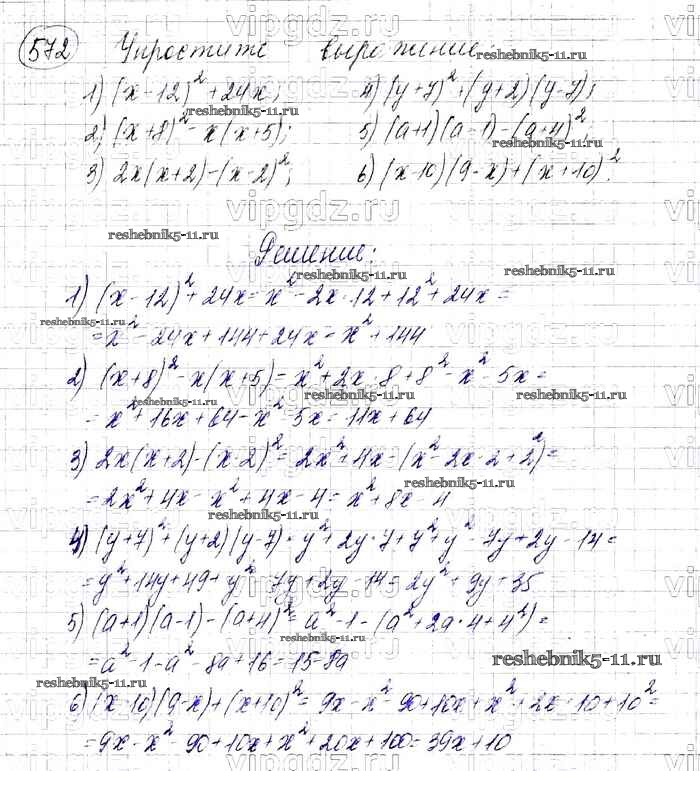 572 Упростите выражение:
1) (x-12)² + 24x; 4) (y+7)² + (y+2)(y-7);
2) (x+8)² - x(x+5); 5) (a+1)(a-1) - (a+4)²;
3) 2x(x+2) - (x-2)²; 6) (x-10)(9-x) + (x+10)².
Решение:
1) (x-12)² + 24x = x² - 2x·12 + 12² + 24x =
= x² - 24x + 144 + 24x = x² + 144
2) (x+8)² - x(x+5) = x² + 2x·8 + 8² - x² - 5x =
= x² + 16x + 64 - x² - 5x = 11x + 64
3) 2x(x+2) - (x-2)² = 2x² + 4x - (x² - 2x·2 + 2²) =
= 2x² + 4x - x² + 4x - 4 = x² + 8x - 4
4) (y+7)² + (y+2)(y-7) = y² + 2y·7 + 7² + y² - 7y + 2y - 14 =
= y² + 14y + 49 + y² - 7y + 2y - 14 = 2y² + 9y + 35
5) (a+1)(a-1) - (a+4)² = a² - 1 - (a² + 2a·4 + 4²) =
= a² - 1 - a² - 8a + 16 = 15 - 8a
6) (x-10)(9-x) + (x+10)² = 9x - x² - 90 + 10x + x² + 2x·10 + 10² =
= 9x - x² - 90 + 10x + x² + 20x + 100 = 39x + 10
reshebnik5-11.ru
vipgdz.ru